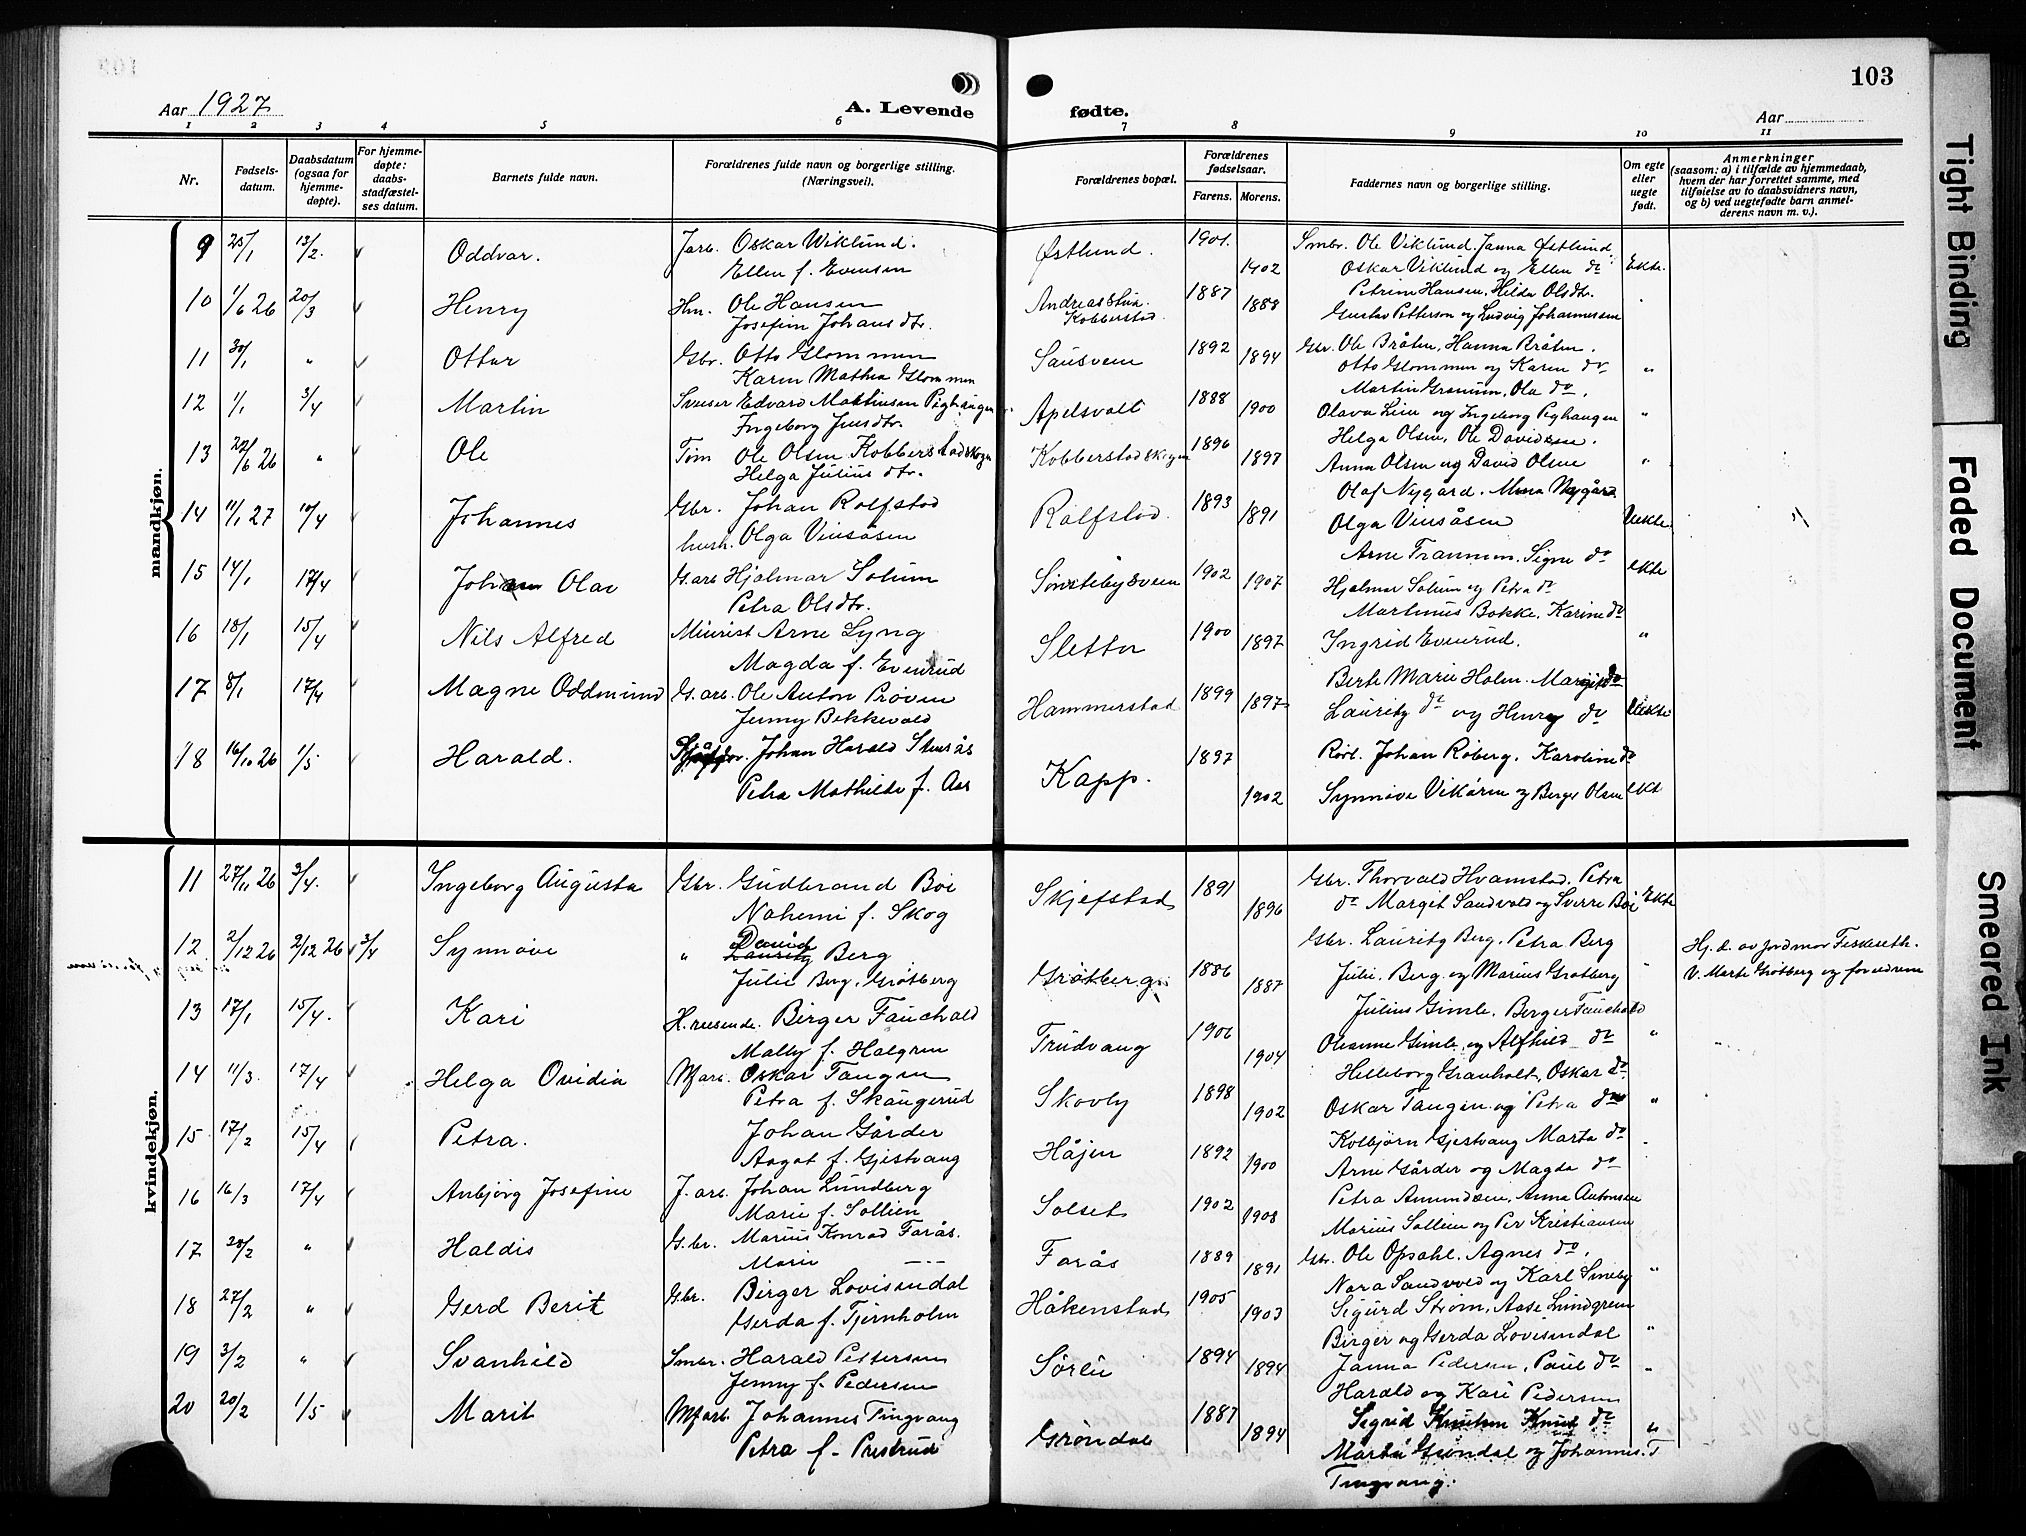 103
Aar 1927
A. Levende
fødte.
Aar
1 2 3 4 5 6 7 8 9 10 11
Nr.
Fødsels-
datum.
Daabsdatum
(ogsaa for
hjemme-
døpte).
For hjemme-
døpte:
daabs-
stadfæstel-
ses datum.
Barnets fulde navn.
Forældrenes fulde navn og borgerlige stilling.
(Næringsvei).
Forældrenes bopæl.
Forældrenes
fødselsaar.
Farens. Morens.
Faddernes navn og borgerlige stilling.
Om egte
eller
uegte
født.
Anmerkninger
(saasom: a) i tilfælde av hjemmedaab,
hvem der har forrettet samme, med
tilføielse av to daabsvidners navn,
og b) ved uegtefødte barn anmel-
derens navn m. v.).
mandkjøn.
9 25/1 13/2 Oddvar. Jarb. Oskar Wiklund. Østlund. 1901. Smbr. Ole Viklund. Janna Østlund
Ellen f. Evensen 1902 Oskar Viklund og Ellen do Ekte.
10 1/6 26 20/3 Henry Hm. Ole Hansen Kobberstad. 1887 Petrine Hansen, Hilda Olsdtr.
Josefine Johansdtr. 1888 Gustav Petterson og Ludvig Johannessen
11 30/1 " Ottar Gbr. Otto Glommen Sausveen 1892 Gbr. Ole Bråten, Hanna Bråten.
Karen Mathea Glommen 1894 Otto Glommen og Karen do "
12 1/1 3/4 Martin Sveiser Edvard Martinsen Pighaugen Apelsvoll 1888 Martin Granum, Ola do.
Ingeborg Jensdtr. 1900 Olava Lien og Ingeborg Pighaugen "
13 22/6 26 " Ole Tøm Ole Olsen Kobberstadskogen Kobberstadskogen 1896 Helga Olsen, Ole Davidsen.
Helga Julius dtr. 1897 Anna Olsen og David Olsen "
14 11/1 27 10/4 Johannes Gbr. Johan Rolfstad Rolfstad. 1893 Olaf Nygård. Mina Nygård
hush. Olga Vinsåsen 1891 Olga Vinsåsen Uekte.
15 14/1 17/4 Johan Olav G. arb Hjalmar Solum 1902 Arne Trannum. Signe do
Petra Olsdtr. 1907 Hjalmar Solum og Petra do ekte
16 18/1 15/4 Nils Alfred Arne Lyng Sletten 1900 Martinus Bakke. Karine do
Magda f. Evenrud 1897 Ingrid Evenrud. "
17 8/1 17/4 Magne Oddmund G. arb. Ole Anton Prøven Hammerstad 1899 Berte Marie Holm. Margit do
Jenny Bekkevold 1897 Lauritz do og Henry do Uekte
18 16/10 26 1/5 Harald. Johan Harald Stusås Kapp. 1897 Johan Roberg. Karoline do
Petra Mathilde f. Aas 1902 Synnøve Vikøren og Berger Olsen ekt
kvindekjøn.
11 27/11 26 3/4. Ingeborg Augusta Gbr. Gudbrand Bøe Skjefstad 1891 Gbr. Thorvald Hvamstad. Petra
Nahemi f. Skog 1896 do Margit Sandvold og Sverre Bøe Ekte
12 2/12 26 2/12 26 3/4 Synnøve " David Lauritz Berg Grøtberg 1886 Gbr. Lauritz Berg, Petra Berg Hj. d. av jordmor Fiskeseth.
Julie Berg, Grøtberg 1887 Julie Berg og Marius Grøtberg " V. Marte Grøtberg og forældrene
13 17/1 15/4. Kari H. reisende. Birger Fauchald Trudvang 1906 Julius Gimle, Berger Fauchald
Mally f. Halgren 1904 Oleanne Gimle og Alfhild do "
14 11/3. 17/4 Helga Ovidia Mfarb. Oskar Tangen Skovly 1898 Helleborg Granholt, Oskar do
Petra f. Skaugerud 1902 Oskar Tangen og Petra do "
15 17/2 15/4 Petra. Johan Gårder Håjen 1892 Kolbjørn Gjestvang Marta do
Aagot f. Gjestvang 1900 Arne Gårder og Magda do
16 16/3 17/4 Anbjørg Josefine J. arb. Johan Lundberg Solset 1902 Petra Amundsen, Anna Antonsen
Marie f. Sollien 1908 Marius Sollien og Per Kristiansen
17 28/2 " Haldis G. br. Marius Konrad Farås. Farås 1889 Gbr. Ole Opsahl. Agnes do.
Marie — " — 1891 Nora Sandvold og Karl Smeby "
18 27/2 " Gerd Berit Gbr. Birger Lovisendal Håkenstad 1905 Sigurd Strøm, Aase Lundgreen
Gerda f. Tjernholm 1903 Birger og Gerda Lovisendal "
19 3/2 " Svanhild Smbr. Harald Pettersen Sørlie 1894 Janna Pedersen, Paul do
Jenny f. Pedersen 1894 Harald og Kari Pedersen "
20 20/2 1/5 Marit Mfarb. Johannes Tingvang Grøndal 1887 Sigrid Knutsen Knut do
Petra f. Prestrud 1894 Marte Grøndal og Johannes. T
Tingvang.
Tight Binding
Faded Document
Smeared Ink